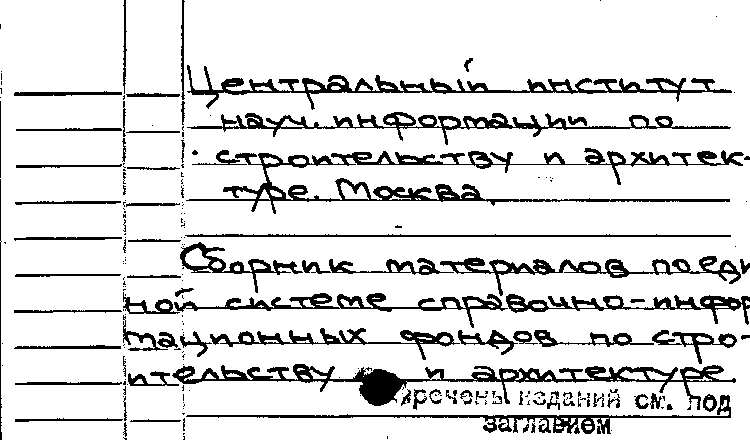 Центральный институт
науч. информации по
строительству и архитек-
туре. Москва.
Сборник материалов по еди
ной системе справочно-инфор
мационных фондов по стро-
ительству и архитектуре.
речень изданий см. под
заглавием